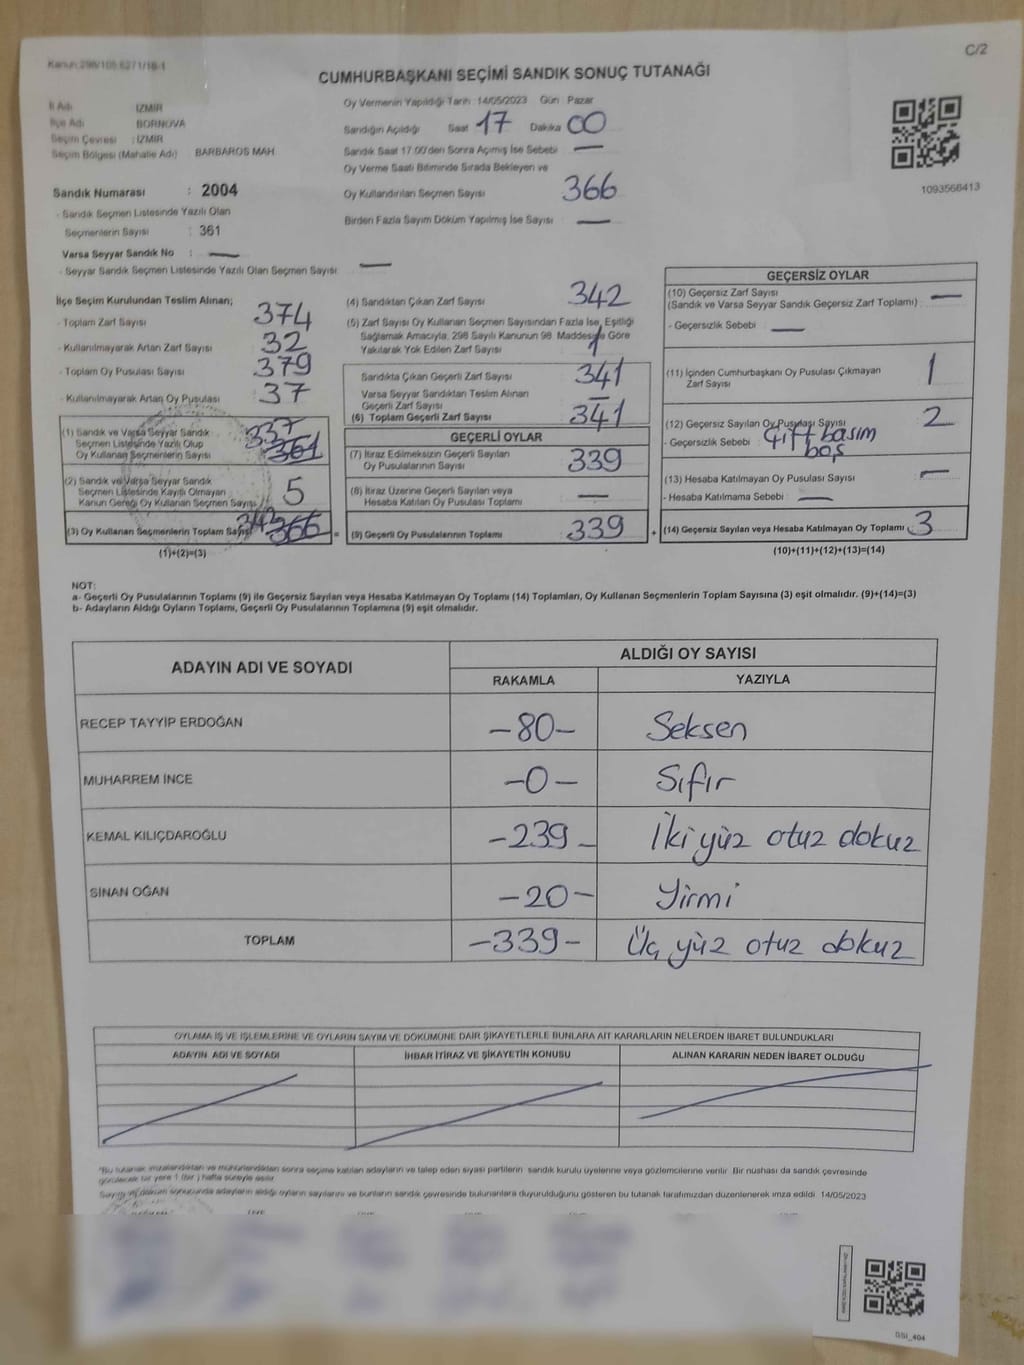 Kanun:298/105.6271/18-1
C/2
CUMHURBAŞKANI SEÇİMİ SANDIK SONUÇ TUTANAĞI
İl Adı : İZMİR
İlçe Adı : BORNOVA
Seçim Çevresi : İZMİR
Seçim Bölgesi (Mahalle Adı) BARBAROS MAH.
Sandık Numarası : 2004
- Sandık Seçmen Listesinde Yazılı Olan
Seçmenlerin Sayısı : 361
Varsa Seyyar Sandık No : —
- Seyyar Sandık Seçmen Listesinde Yazılı Olan Seçmen Sayısı: —
Oy Vermenin Yapıldığı Tarih : 14/05/2023 Gün : Pazar
Sandığın Açıldığı Saat 17 Dakika 00
Sandık Saat 17:00'den Sonra Açımış İse Sebebi : —
Oy Verme Saati Bitiminde Sırada Bekleyen ve
Oy Kullandırılan Seçmen Sayısı : 366
Birden Fazla Sayım Döküm Yapılmış İse Sayısı : —
1093566413
İlçe Seçim Kurulundan Teslim Alınan;
- Toplam Zarf Sayısı : 374
- Kullanılmayarak Artan Zarf Sayısı : 32
- Toplam Oy Pusulası Sayısı : 379
- Kullanılmayarak Artan Oy Pusulası : 37
(1) Sandık ve Varsa Seyyar Sandık
Seçmen Listesinde Yazılı Olup
Oy Kullanan Seçmenlerin Sayısı : 337 361
(2) Sandık ve Varsa Seyyar Sandık
Seçmen Listesinde Kayıtlı Olmayan
Kanun Gereği Oy Kullanan Seçmen Sayısı : 5
(3) Oy Kullanan Seçmenlerin Toplam Sayısı 342 366 =
(1)+(2)=(3)
(4) Sandıktan Çıkan Zarf Sayısı : 342
(5) Zarf Sayısı Oy Kullanan Seçmen Sayısından Fazla İse, Eşitliği
Sağlamak Amacıyla, 298 Sayılı Kanunun 98. Maddesine Göre
Yakılarak Yok Edilen Zarf Sayısı : 1
Sandıkta Çıkan Geçerli Zarf Sayısı : 341
Varsa Seyyar Sandıktan Teslim Alınan
Geçerli Zarf Sayısı : —
(6) Toplam Geçerli Zarf Sayısı : 341
GEÇERLİ OYLAR
(7) İtiraz Edilmeksizin Geçerli Sayılan
Oy Pusulalarının Sayısı : 339
(8) İtiraz Üzerine Geçerli Sayılan veya
Hesaba Katılan Oy Pusulası Toplamı : —
(9) Geçerli Oy Pusulalarının Toplamı : 339 +
GEÇERSİZ OYLAR
(10) Geçersiz Zarf Sayısı
(Sandık ve Varsa Seyyar Sandık Geçersiz Zarf Toplamı) : —
- Geçersizlik Sebebi : —
(11) İçinden Cumhurbaşkanı Oy Pusulası Çıkmayan
Zarf Sayısı : 1
(12) Geçersiz Sayılan Oy Pusulası Sayısı : 2
- Geçersizlik Sebebi : Çift basım
boş
(13) Hesaba Katılmayan Oy Pusulası Sayısı : —
- Hesaba Katılmama Sebebi : —
(14) Geçersiz Sayılan veya Hesaba Katılmayan Oy Toplamı : 3
(10)+(11)+(12)+(13)=(14)
NOT:
a- Geçerli Oy Pusulalarının Toplamı (9) ile Geçersiz Sayılan veya Hesaba Katılmayan Oy Toplamı (14) Toplamları, Oy Kullanan Seçmenlerin Toplam Sayısına (3) eşit olmalıdır. (9)+(14)=(3)
b- Adayların Aldığı Oyların Toplamı, Geçerli Oy Pusulalarının Toplamına (9) eşit olmalıdır.
ADAYIN ADI VE SOYADI ALDIĞI OY SAYISI
RAKAMLA YAZIYLA
RECEP TAYYİP ERDOĞAN -80- Seksen
MUHARREM İNCE -0- Sıfır
KEMAL KILIÇDAROĞLU -239- İki yüz otuz dokuz
SİNAN OĞAN -20- Yirmi
TOPLAM -339- Üç yüz otuz dokuz
OYLAMA İŞ VE İŞLEMLERİNE VE OYLARIN SAYIM VE DÖKÜMÜNE DAİR ŞİKAYETLERLE BUNLARA AİT KARARLARIN NELERDEN İBARET BULUNDUKLARI
ADAYIN ADI VE SOYADI İHBAR İTİRAZ VE ŞİKAYETİN KONUSU ALINAN KARARIN NEDEN İBARET OLDUĞU
*Bu tutanak imzalandıktan ve mühürlendikten sonra seçime katılan adayların ve talep eden siyasi partilerin sandık kurulu üyelerine veya gözlemcilerine verilir. Bir nüshası da sandık çevresinde
görülecek bir yere 1 (bir ) hafta süreyle asılır.
Sayım ve döküm sonucunda adayların aldığı oyların sayılarını ve bunların sandık çevresinde bulunanlara duyurulduğunu gösteren bu tutanak tarafımızdan düzenlenerek imza edildi. 14/05/2023
SSI_404